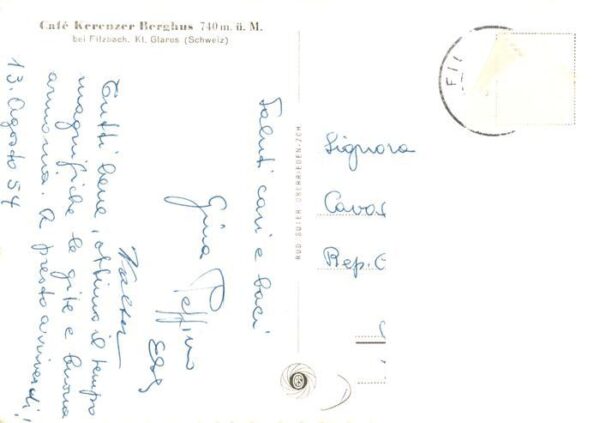 Café Kerenzer Berghus 740 m. ü. M.
bei Filzbach, Kt. Glarus (Schweiz)
13. Agosto 54
Tutti bene, ottimo il tempo
magnifiche le gite e buona
armonia. A presto arrivederci!
Saluti cari e baci
Gina Peffino
Walter
RUD. SUTER OBERRIEDEN-ZCH
Signora
Cavas
Rep. C
FII